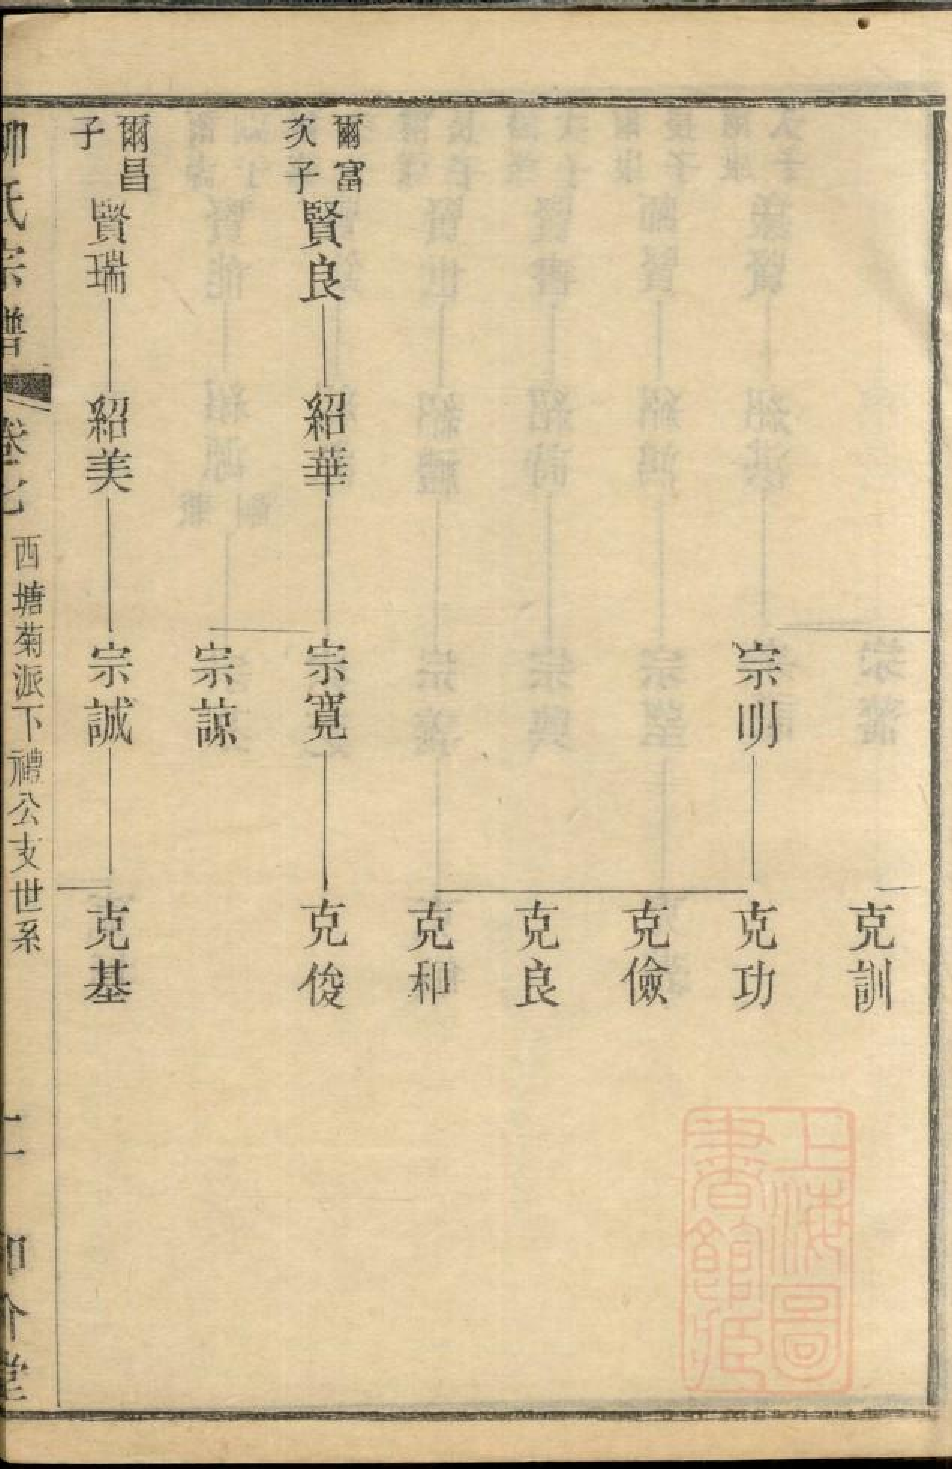 克訓
宗明 克功
克儉
克良
克和
爾富
次子
賢良 紹華 宗寬 克俊
宗諒
爾昌
子
賢瑞 紹美 宗誠 克基
柳氏宗譜 卷七 西塘菊派下禮公支世系
上海圖
書館藏